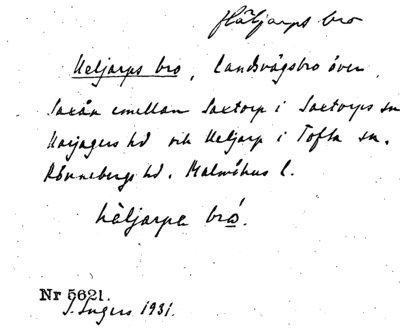 Häljarps bro
Heljarps bro, Landsvägsbro över
Saxån emellan Saxtorp i Saxtorps sn
Harjagers hd och Heljarp i Tofta sn.
Rönnebergs hd. Malmöhus l.
häljarpa brö.
Nr 5621.
I. Ingers 1931.